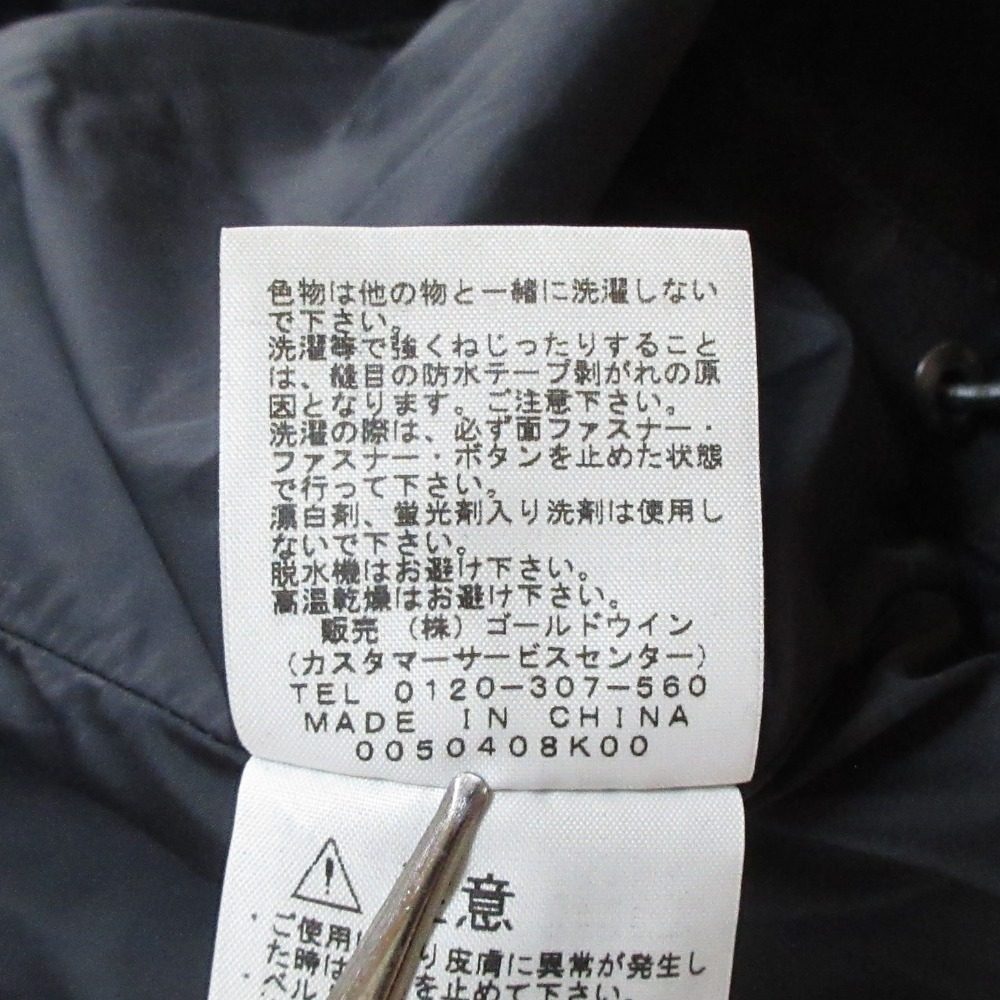 色物は他の物と一緒に洗濯しない
で下さい。
洗濯等で強くねじったりすること
は、縫目の防水テープ剥がれの原
因となります。ご注意下さい。
洗濯の際は、必ず面ファスナー・
ファスナー・ボタンを止めた状態
で行って下さい。
漂白剤、蛍光剤入り洗剤は使用し
ないで下さい。
脱水機はお避け下さい。
高温乾燥はお避け下さい。
販売 (株) ゴールドウイン
(カスタマーサービスセンター)
TEL 0120-307-560
MADE IN CHINA
0050408K00
意
ご使用
た時は り皮膚に異常が発生し
ベル を止めて下さい。